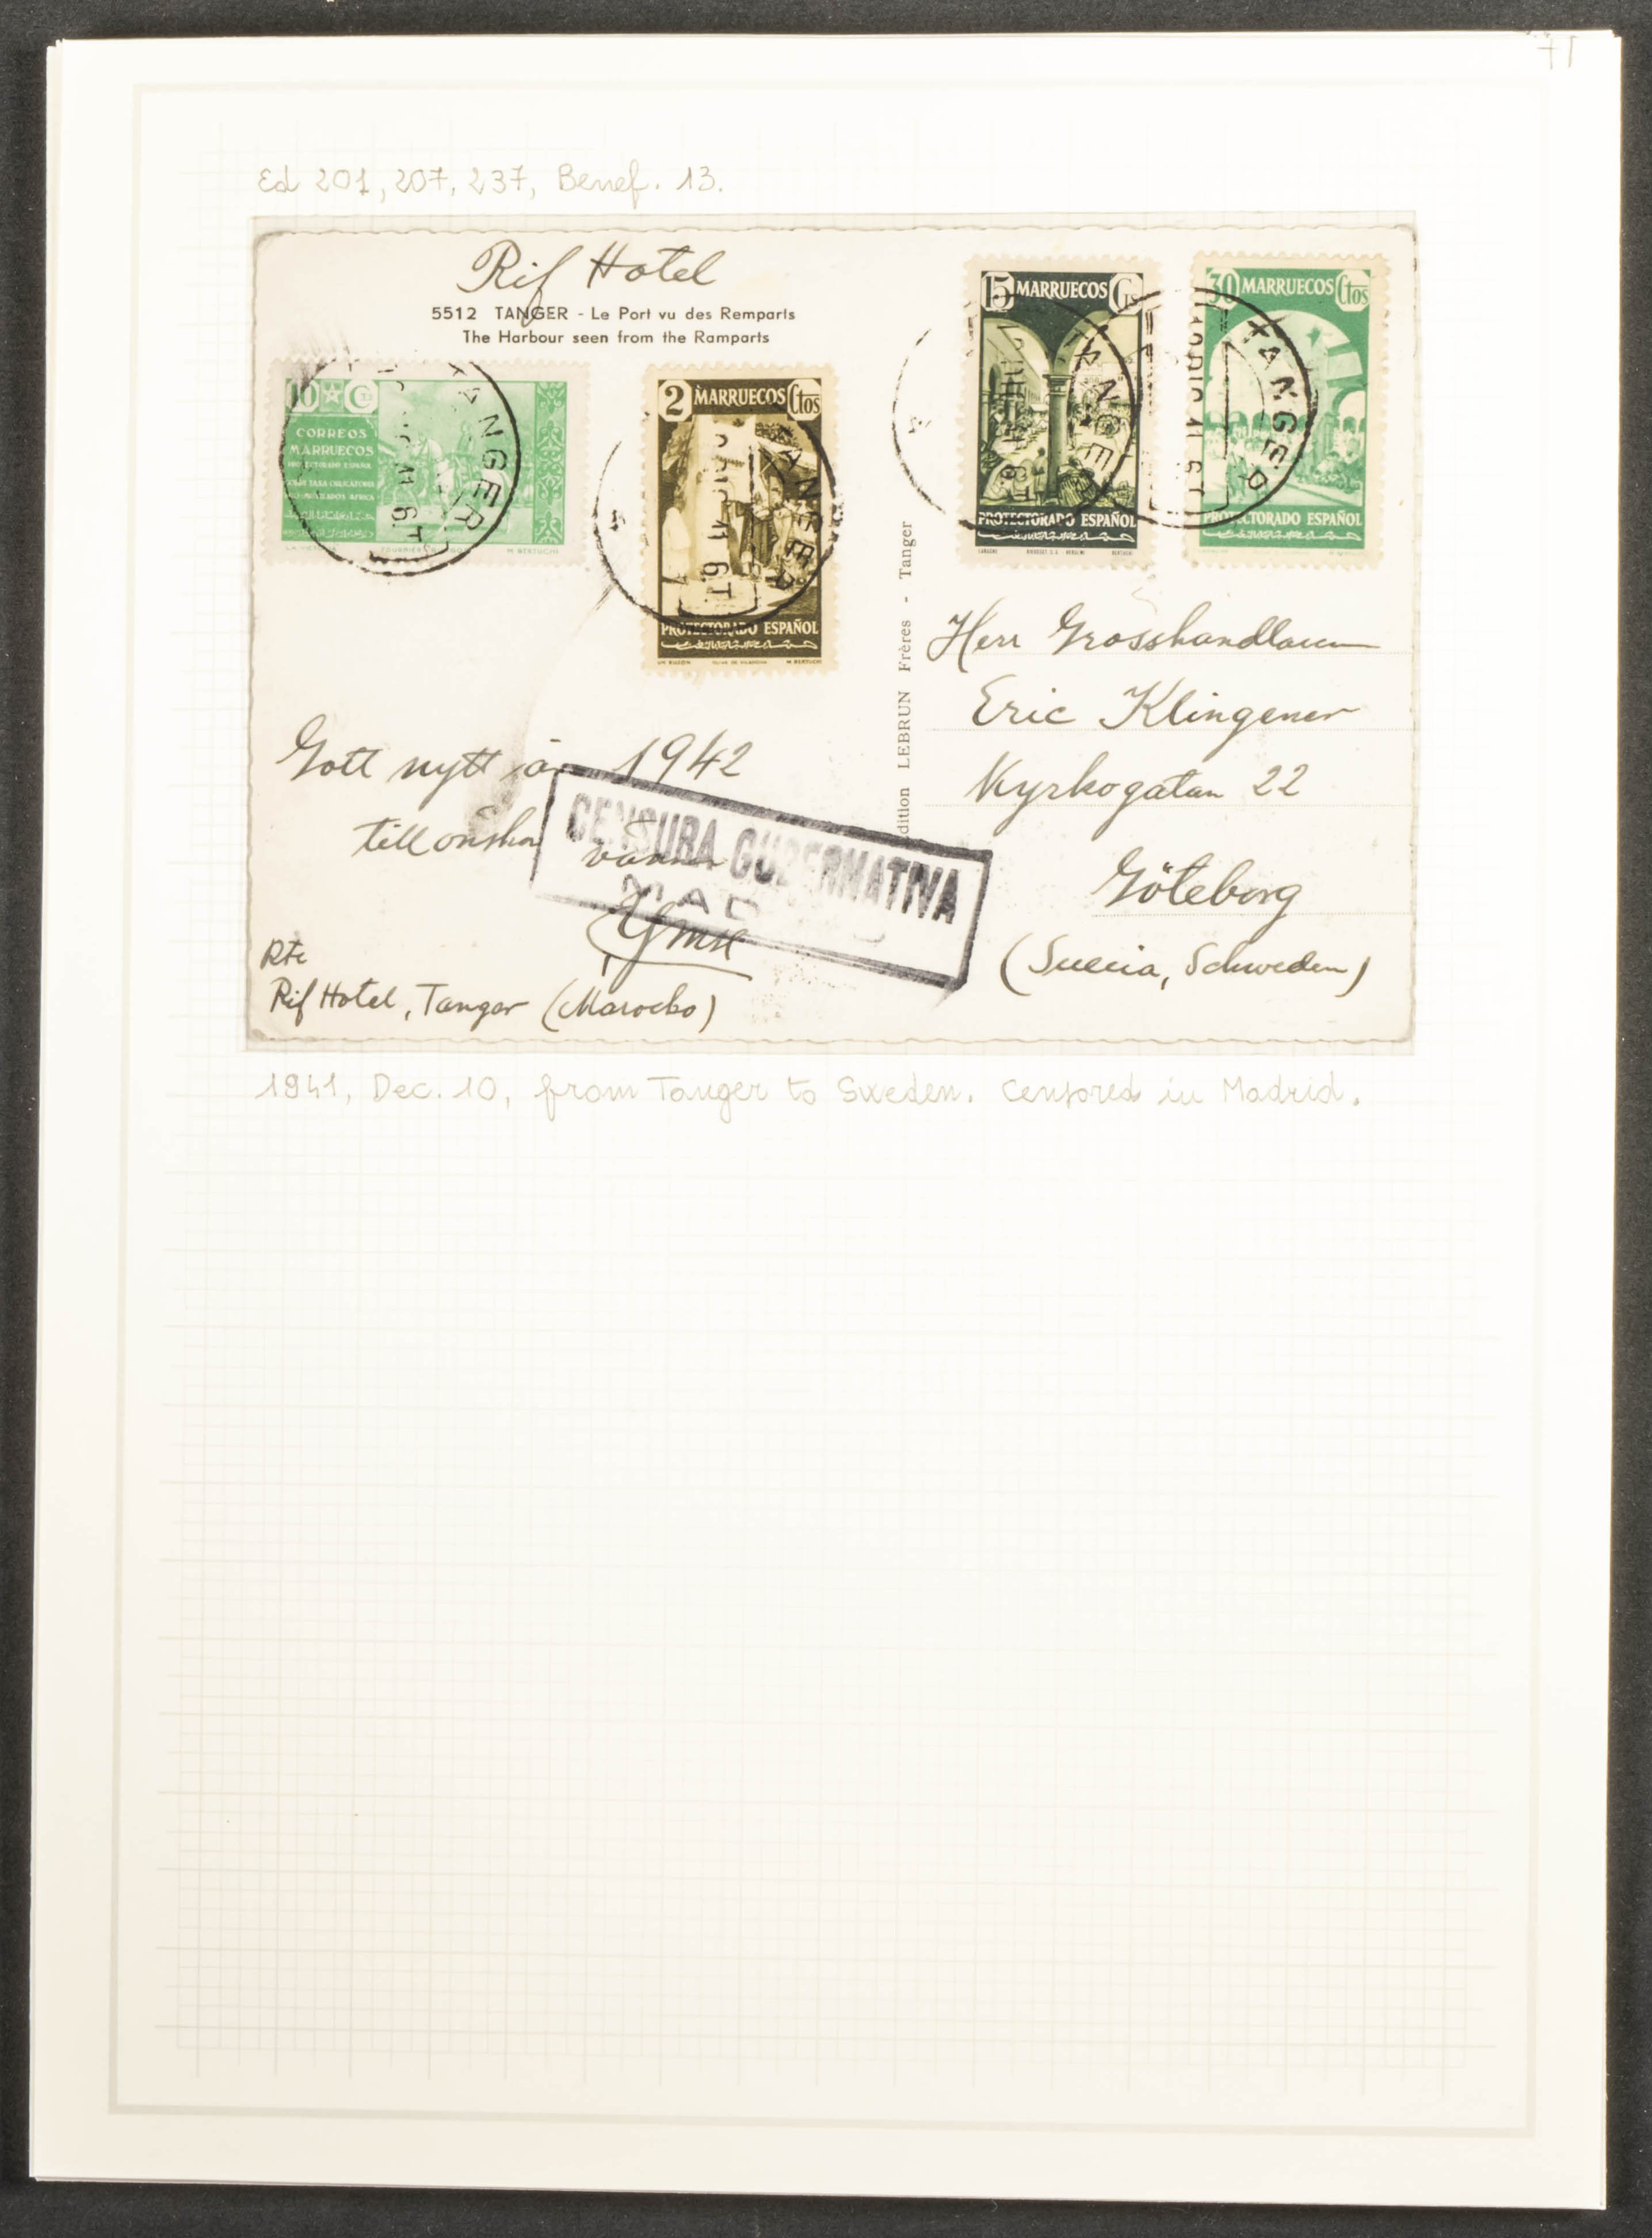 71
Ed 201, 207, 237, Benef. 13.
Rif Hotel
5512 TANGER - Le Port vu des Remparts
The Harbour seen from the Ramparts
10 Cts
CORREOS
MARRUECOS
PROTECTORADO ESPAÑOL
MUTILADOS AFRICA
M. BERTUCHI
TANGER
2 MARRUECOS Ctos
PROTECTORADO ESPAÑOL
M. BERTUCHI
TANGER
15 MARRUECOS Cts
PROTECTORADO ESPAÑOL
LARACHE
BERTUCHI
TANGER
30 MARRUECOS Ctos
PROTECTORADO ESPAÑOL
TANGER
10 DIC 41 6T
Edition LEBRUN Frères - Tanger
Gott nytt år 1942
tillönskar vännen
CENSURA GUBERNATIVA
MAD
Rte
Rif Hotel, Tanger (Marocko)
Herr Grosshandlaren
Eric Klingener
Kyrkogatan 22
Göteborg
(Suecia, Schweden)
1941, Dec. 10, from Tanger to Sweden. Censored in Madrid.